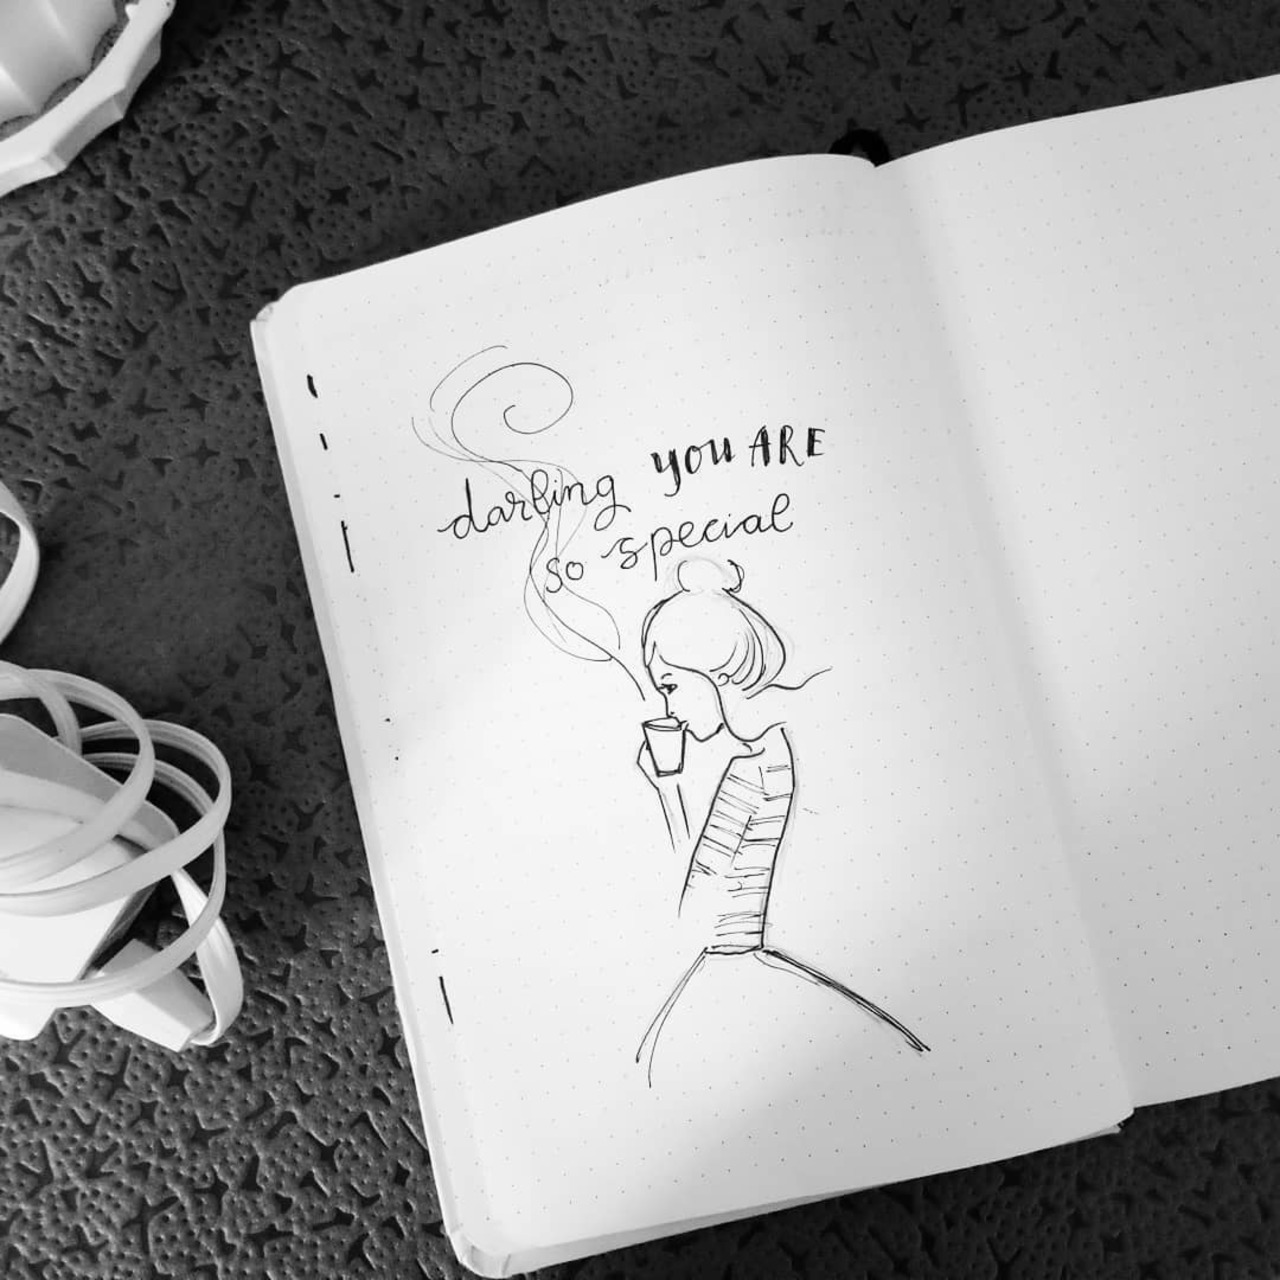 darling YOU ARE
so special